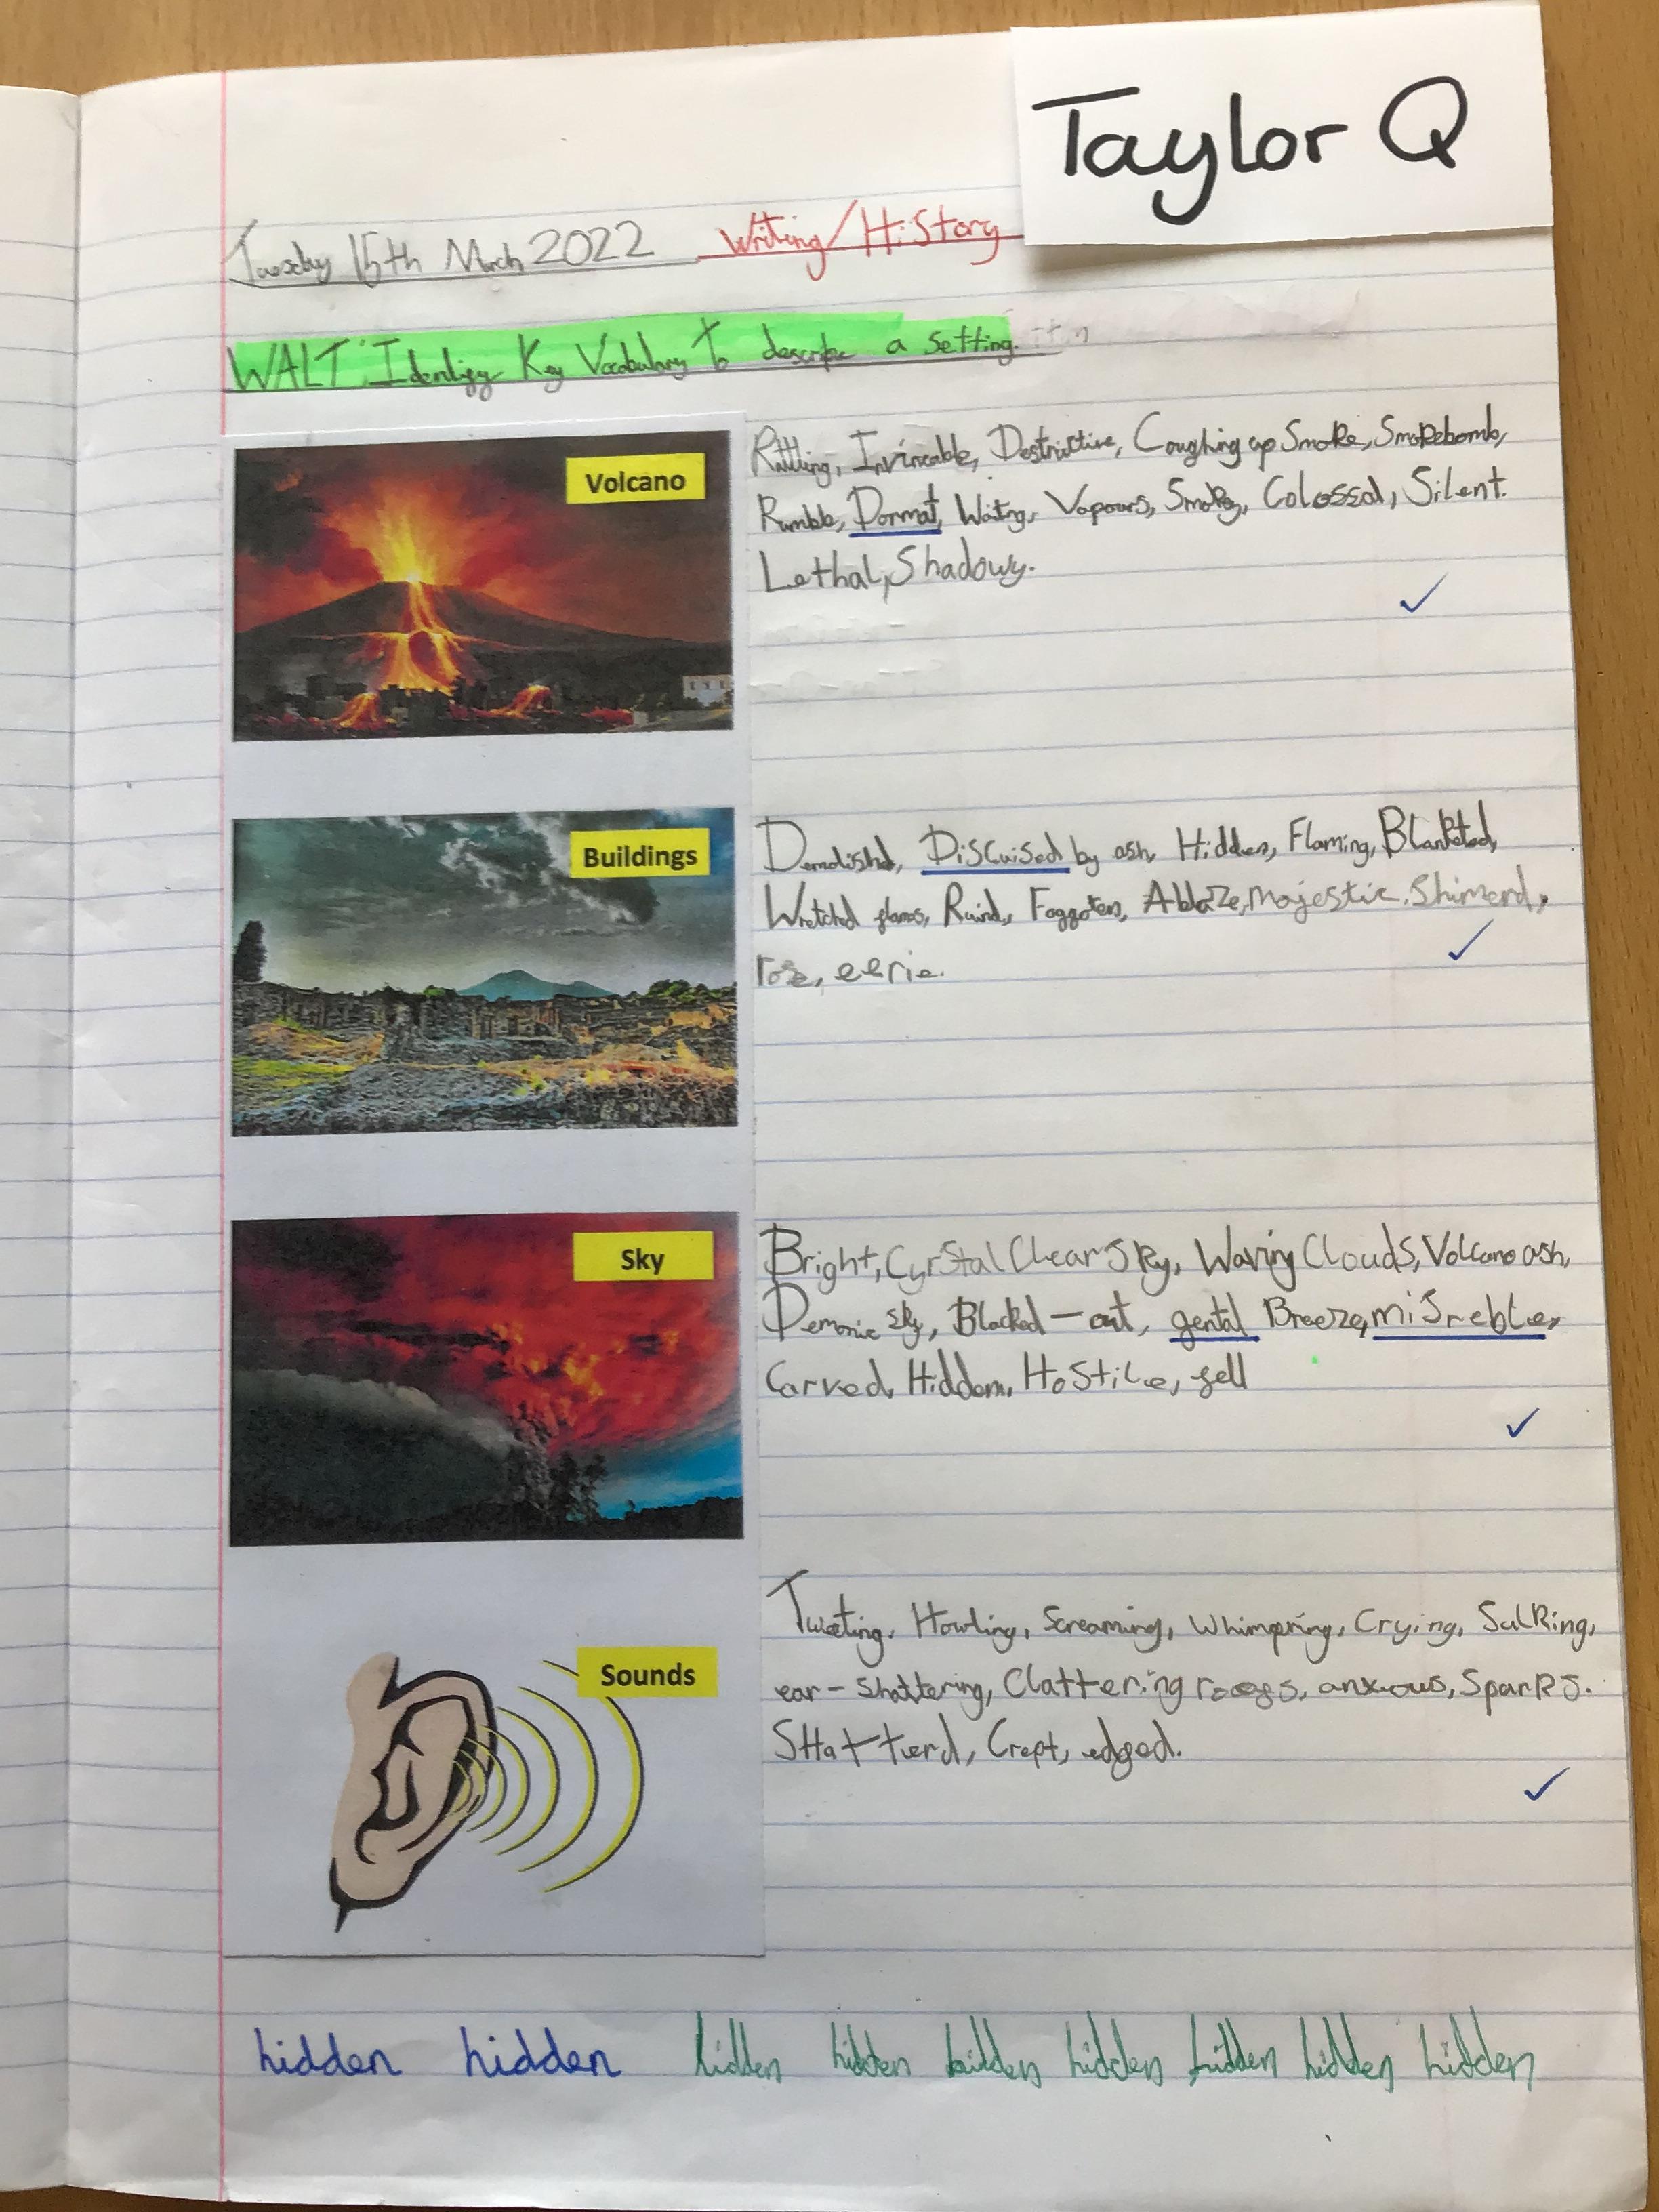 Taylor Q
Tuesday 15th March 2022 Writing/History
WALT: Identify Key Vocabulary To describe a setting.
Volcano
Rattling, Invincable, Destructive, Coughing up Smoke, Smokebomb,
Rumble, Dormat, Waiting, Vapours, Smokey, Colossal, Silent.
Lethal, Shadowy.
Buildings
Demolishd, Discuised by ash, Hidden, Flaming, Blanketed,
Wretched flames, Ruind, Foggoten, Ablaze, majestic, Shimerd,
rose, eerie.
Sky
Bright, Cyrstal Clear Sky, Waving Clouds, Volcano ash,
Demonic sky, Blacked-out, gental Breeze, misreble,
Carved, Hidden, Hostile, fell
Sounds
Tweeting. Howling, Screaming, Whimpring, Crying, Sulking,
ear-shattering, Clattering, anxious, Sparks.
SHatterd, Crept, edged.
hidden hidden hidden hidden hidden hidden hidden hidden hidden